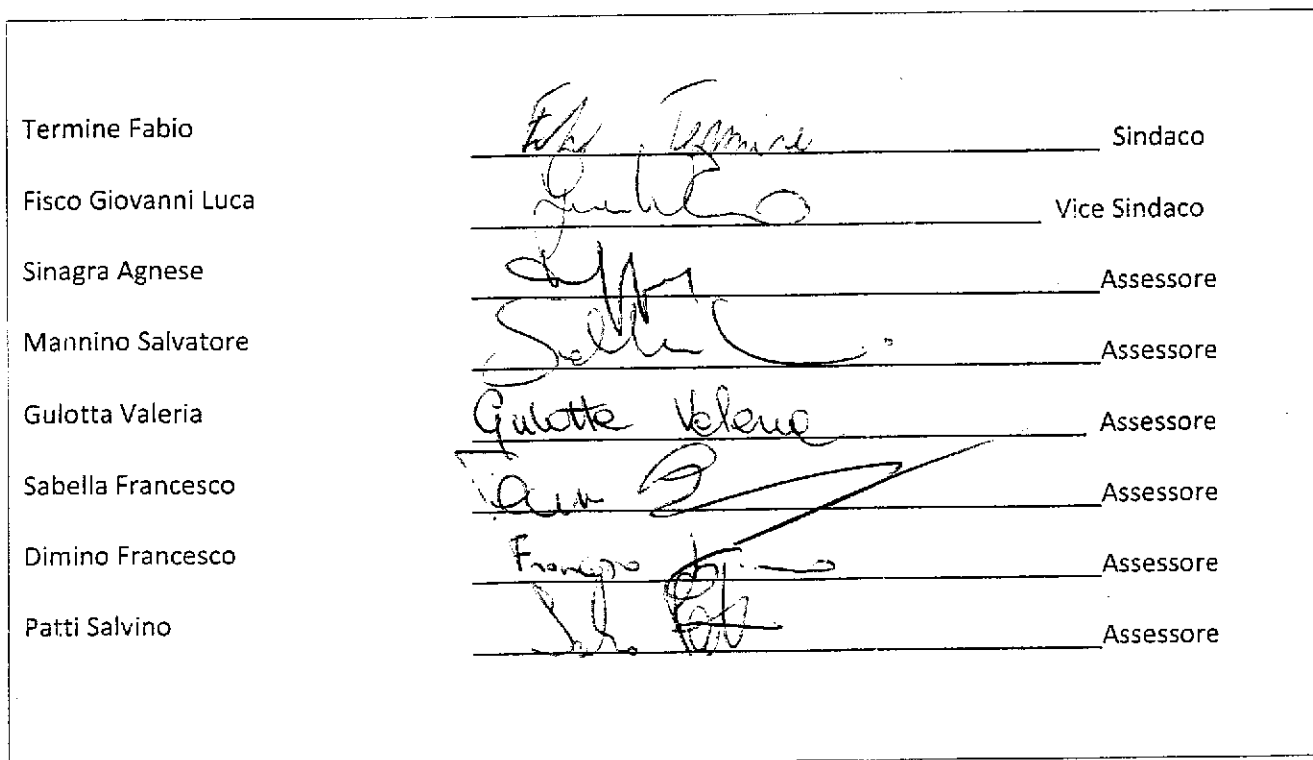 Termine Fabio Termine Sindaco
Fisco Giovanni Luca Vice Sindaco
Sinagra Agnese Assessore
Mannino Salvatore Assessore
Gulotta Valeria Gulotta Valeria Assessore
Sabella Francesco Assessore
Dimino Francesco Francesco Dimino Assessore
Patti Salvino Assessore